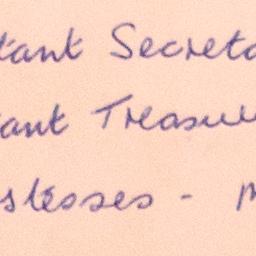 tant Secreta
ant Treasure
stesses - M